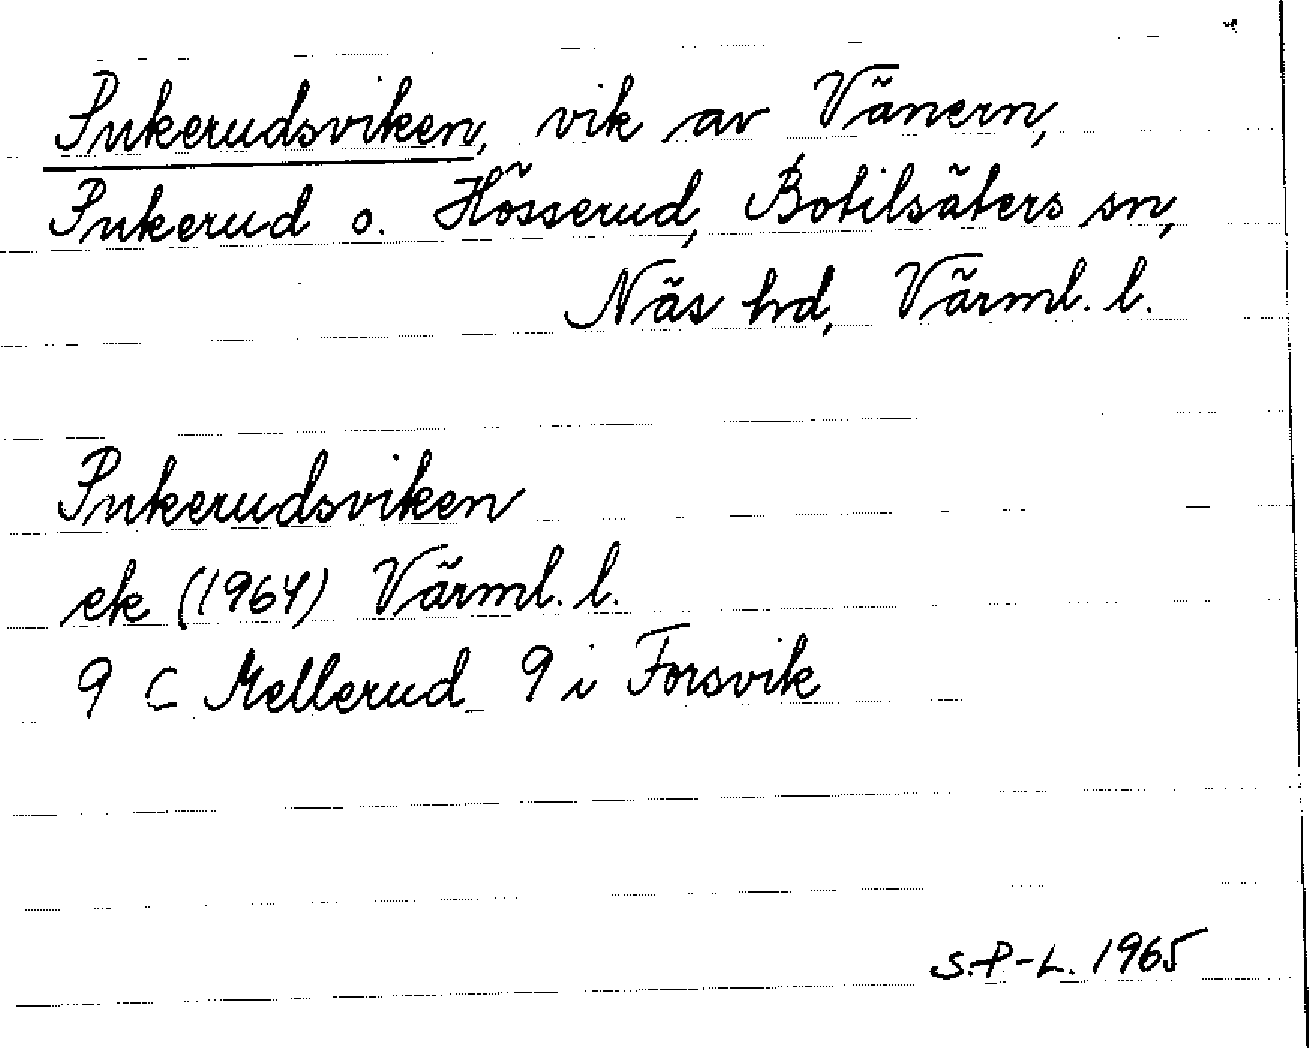 Pukerudsviken, vik av Vänern,
Pukerud o. Hösserud, Botilsäters sn,
Näs hd, Värml. l.
Pukerudsviken
ek (1964) Värml. l.
9 C Mellerud 9 i Forsvik
S.P-L. 1965